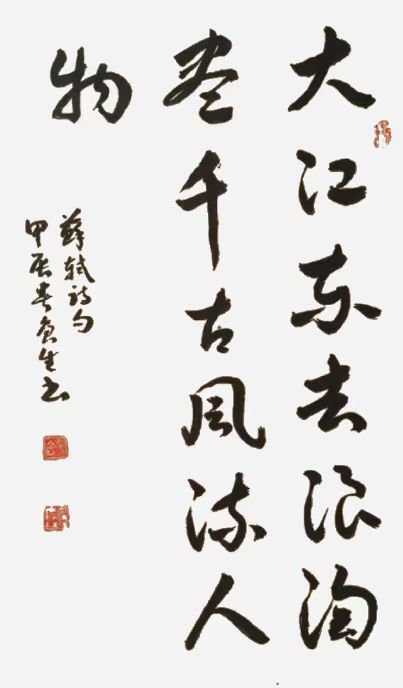 大江东去浪淘
尽千古风流人
物
苏轼诗句
甲辰春